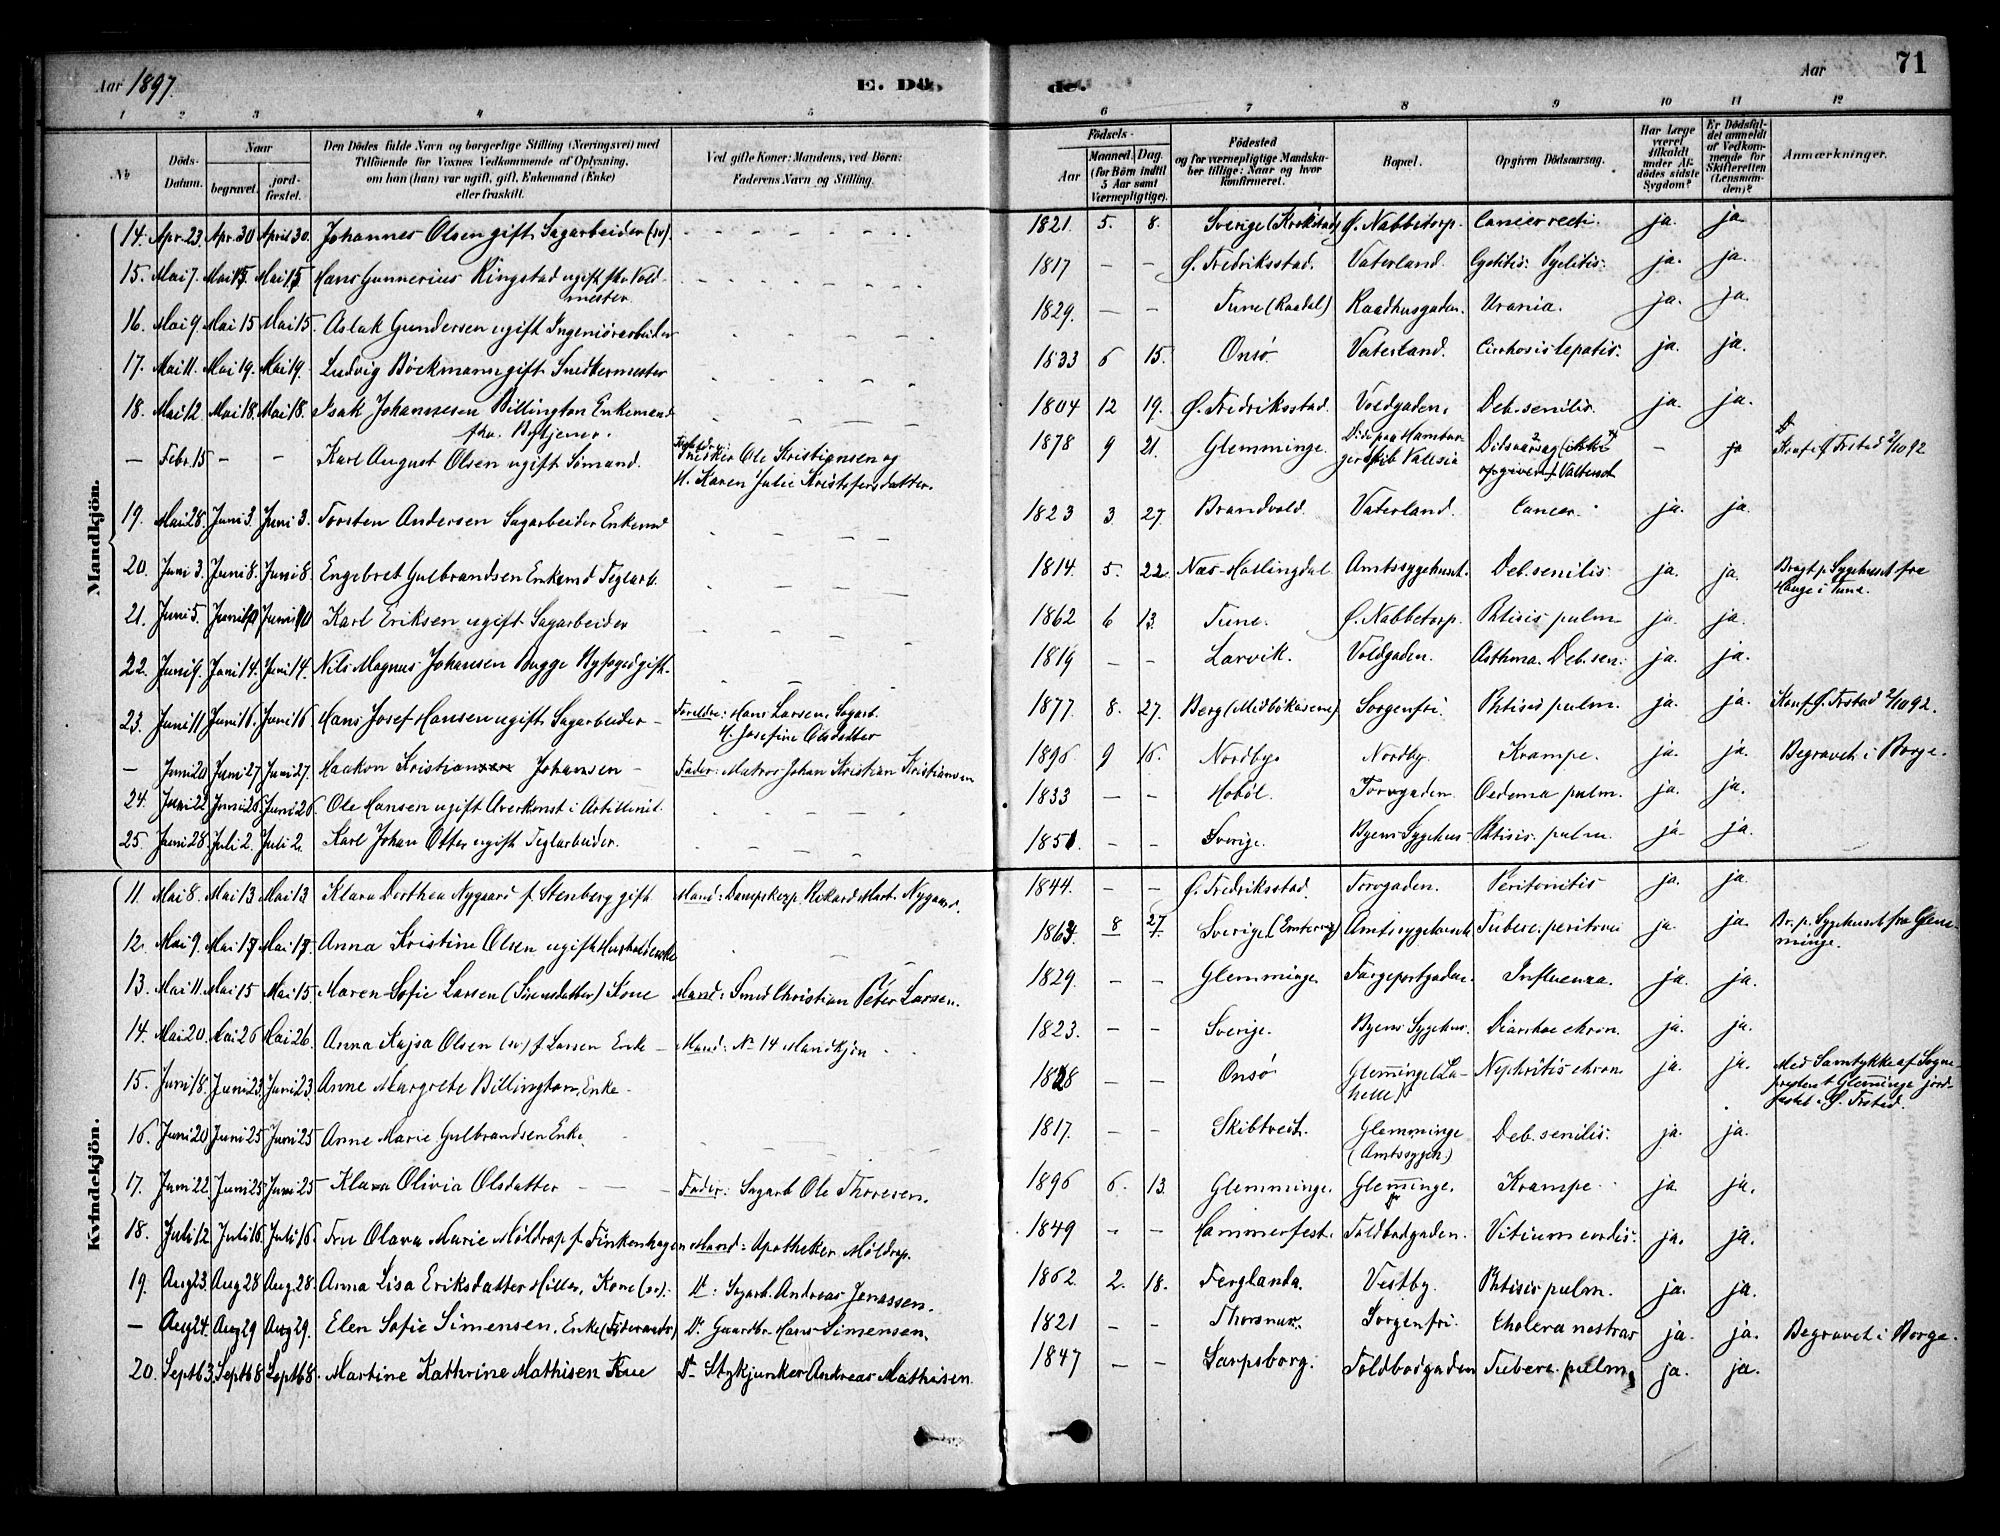 Aar 1897. E. Dö- de. Aar 71
1 2 3 4 5 6 7 8 9 10 11 12
No
Döds-Datum.
Naar
begravet. jordfæstet.
Den Dödes fulde Navn og borgerlige Stilling (Næringsvei) med
Tilföiende for Voxnes Vedkommende af Oplysning,
om han (hun) var ugift, gift, Enkemand (Enke)
eller fraskilt.
Ved gifte Koner: Mandens, ved Börn:
Faderens Navn og Stilling.
Födsels-
Aar Maaned. Dag.
(for Börn indtil
5 Aar samt
Værnepligtige).
Födested
og for værnepligtige Mandskaber tillige: Naar og hvor
konfirmeret.
Bopæl.
Opgiven Dödsaarsag.
Har Læge
været
tilkaldt
under Afdödes sidste
Sygdom?
Er Dödsfaldet anmeldt
af Vedkommende for
Skifteretten
(Lensmanden)?
Anmærkninger.
Mandkjön.
14. Apr. 23 Apr. 30 April 30. Johannes Olsen gift Sagarbeider (sv). 1821. 5. 8. Sverige (Krokstad) Ø. Nabbetorp. Cancer recti. ja. ja.
15. Mai 7. Mai 15. Mai 15 Hans Gunnerius Ringstad ugift fhv. Vold-
mester. 1817 — — Ø. Fredriksstad. Vaterland. Cystitis. Pyelitis. ja. ja.
16. Mai 9. Mai 15 Mai 15. Aslak Gundersen ugift Ingeniörarbeider 1829. — — Tune (Raadal) Raadhusgaden. Urania. ja. ja.
17. Mai 11. Mai 19. Mai 19. Ludvig Böckmann gift Snedkermester 1833 6 15. Onsö Vaterland. Cirrhosis hepatis. ja. ja.
18. Mai 12. Mai 18. Mai 18. Isak Johannesen Billington Enkemand
fhv. Bytjener. 1804 12 19. Ø. Fredriksstad. Voldgaden. Deb. senilis. ja. ja.
— Febr. 15 — — Karl August Olsen ugift Sömand. Ole Kristiansen og
H. Karen Julie Kristofersdatter. 1878 9 21. Glemminge. Döde paa Hambur-
gerskib Valesia Dödsaarsag (ikke
opgivet) — ja Konf. i Ø. Frstad 2/10 92
19. Mai 28. Juni 3. Juni 3. Torsten Andersen Sagarbeider Enkemd 1823 3 27. Brandvold. Vaterland. Cancer. ja. ja.
20. Juni 3. Juni 8. Juni 8. Engebret Gulbrandsen Enkemd Teglarb. 1814. 5. 22. Næs-Hallingdal Amtssygehuset. Deb. senilis. ja. ja. Bragt p. Sygehuset fra
Hauge i Tune.
21. Juni 5 Juni 10 Juni 10 Karl Eriksen ugift Sagarbeider 1862 6 13. Tune. Ø. Nabbetorp. Phtisis pulm. ja. ja.
22. Juni 9. Juni 14. Juni 14. Nils Magnus Johansen Bugge Byfoged gift. 1819 — — Larvik. Voldgaden. Asthma. Deb. sen. ja. ja.
23. Juni 11 Juni 16. Juni 16 Hans Josef Hansen ugift Sagarbeider — Forældre: Hans Larsen, Sagarb.
H. Josefine Olsdatter 1877. 8. 27. Berg (Midbökasene) Sorgenfri. Phtisis pulm. ja. ja. Konf. Ø. Frstad 2/10 92.
— Juni 20 Juni 27 Juni 27. Haakon Kristian Johansen — Fader: Matros Johan Kristian Kristiansen 1896 9 16. Nordby. Nordby. Krampe. ja. ja. Begravet i Borge.
24. Juni 22 Juni 26 Juni 26. Ole Hansen ugift 1833 — — Hobøl. Torvgaden. Oedema pulm. ja. ja.
25. Juni 28. Juli 2. Juli 2. Karl Johan Otter ugift Teglarbeider. 1851. — — Sverige. Byens Sygehus Phtisis pulm. ja ja.
Kvindekjön.
11. Mai 8. Mai 13 Mai 13 Klara Dorthea Nygaard f. Stenberg gift Mand: Dampskexp. Rikard Mart. Nygaard. 1844. — — Ø. Fredriksstad. Torvgaden. Peritonitis ja. ja.
12. Mai 9. Mai 17 Mai 17. Anna Kristine Olsen ugift 1863. 8 27. Sverige Amtssygehuset Tuberc. peritonei ja. ja. Br. p. Sygehuset fra Glem-
minge.
13. Mai 11. Mai 15 Mai 15 Maren Sofie Larsen (Simensdatter) Kone Mand: Smed Christian Peter Larsen. 1829. — — Glemminge Færgeportgaden. Influenza. ja. ja.
14. Mai 20. Mai 26 Mai 26. Anna Kajsa Olsen (sv.) f. Larsen Enke — Mand: No 14 Mandkjön 1823. — — Sverige. Byens Sygehus. Diarrhoe chron. ja. ja.
15. Juni 18. Juni 23. Juni 23 Anne Margrete Billington, Enke — 1828 — — Onsö Glemminge (La-
helle) Nephritis chron ja. ja. Med Samtykke af Sogne-
presten t. Glemminge jord-
fæstet i Ø. Frstad.
16. Juni 20 Juni 25 Juni 25 Anne Marie Gulbrandsen Enke. 1817. — — Skibtveit. Glemminge
(Amtssygeh.) Deb. senilis. ja. ja.
17. Juni 22. Juni 25 Juni 25 Klara Olivia Olsdatter — — — Fader: Sagarb Ole Thoresen. 1896 6. 13. Glemminge. Glemminge. Krampe ja. ja.
18. Juli 12. Juli 16. Juli 16. Fru Olava Marie Möldrup f. Finkenhagen Mand: Apotheker Möldrup. 1849 — — Hammerfest. Toldbodgaden. Vitium cordis. ja. ja.
19. Aug 23. Aug 28 Aug. 28. Anna Lisa Eriksdatter Kone (sv). Do: Sagarb. Andreas Jonassen. 1862. 2. 18. Ferglanda. Vestby. Phtisis pulm. ja. ja.
— Aug 24. Aug 29 Aug 29. Elen Sofie Simensen, Enke Do Gaardbr. Hans Simensen. 1821 — — Thorsnæs. Sorgenfri. Cholera nostras ja. ja. Begravet i Borge.
20. Septb 3. Septb 8 Septb 8. Martine Kathrine Mathisen Kone Do Stykjunker Andreas Mathisen. 1847 — — Sarpsborg. Toldbodgaden Tuberc. pulm. ja. ja.